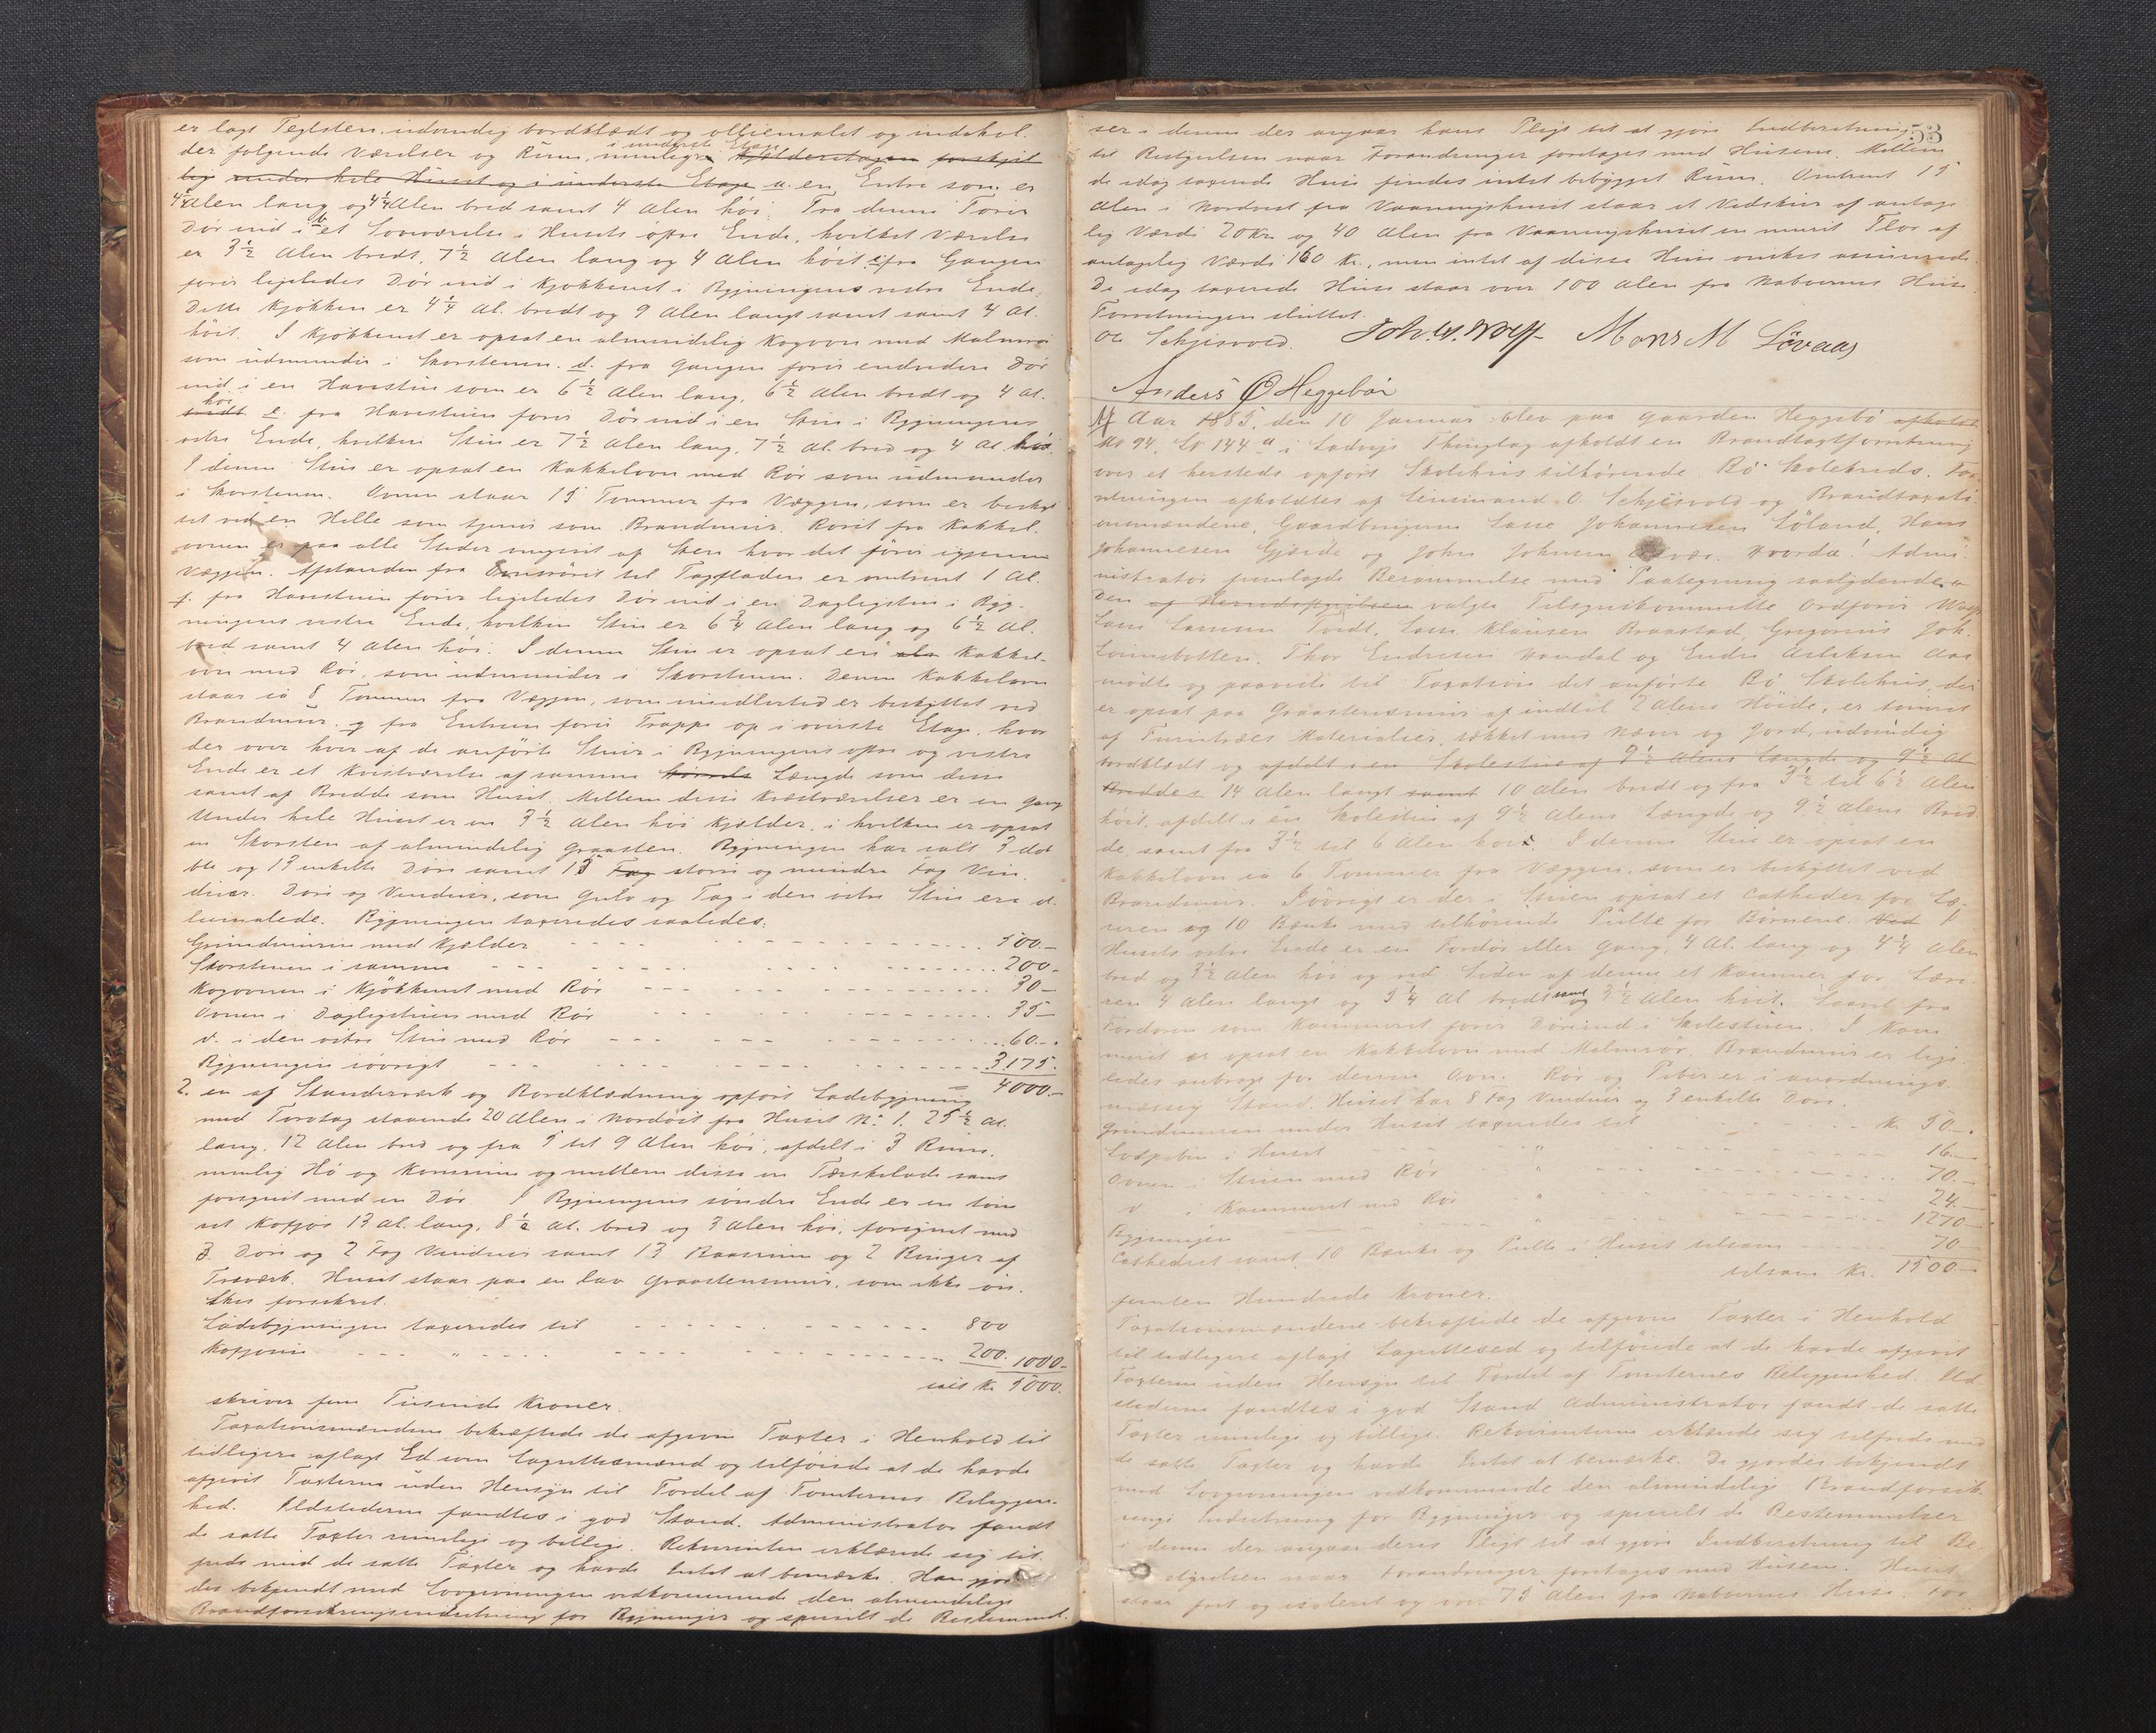 er lagt Teglsten, udvendig bordklædt og olliemalet og indehol-
der følgende Værelser og Rum, nemlig i underste Etage kjælderetagen forskjel
lig under hele Huset og i underste Etage a. en Entre som er
4 1/4 Alen lang og 4 1/4 Alen bred samt 4 Alen høi. Fra denne fører
Dør ind i b et Soveværelse i Husets østre Ende, hvilket Værelse
er 3 1/2 Alen bredt, 7 1/2 Alen lang og 4 Alen høit c fra Gangen
fører ligeledes Dør ind i Kjøkkenet i Bygningens vestre Ende.
Dette Kjøkken er 4 1/4 Al. bredt og 9 Alen langt samt samt 4 Al.
høit. I Kjøkkenet er opsat en almindelig Kogovn med Malmrør
som udmunder i Skorstenen. d. fra Gangen fører endvidere Dør
ind i en Havestue som er 6 1/2 Alen lang, 6 1/2 Alen bredt og 4 Al.
bredt høi e. fra Havestuen fører Dør ind i en Stue i Bygningens
østre Ende, hvilken Stue er 7 1/2 Alen lang, 7 1/2 Al. bred og 4 Al høi.
I denne Stue er opsat en Kakkelovn med Rør som udmunder
i Skorstenen. Ovnen staar 15 Tommer fra Væggen, som er beskyt
tet ved en Helle som tjener som Brandmur. Røret fra Kakkel-
ovnen er paa alle Steder omgivet af Sten hvor det fører igjennem
Væggen. Afstanden fra Ovnsrøret til Tagfladen er omtrent 1 Al.
f. fra Havestuen fører ligeledes Dør ind i en Dagligstue i Byg-
ningens vestre Ende, hvilken Stue er 6 3/4 Alen lang og 6 1/2 Al.
bred samt 4 Alen høi. I denne Stue er opsat en Kakkel-
ovn med Rør, som udmunder i Skorstenen. Denne Kakkelovn
staar ca 8 Tommer fra Væggen, som imidlertid er beskyttet ved
Brandmur. g fra Entreen fører Trappe op i øverste Etage, hvor
der over hver af de anførte Stuer i Bygningens østre og vestre
Ende er et Kvistværelse af samme Længde som disse
samt af Bredde som Huset. Mellem disse Kvistværelser er en Gang
Under hele Huset er en 3 1/2 Alen høi Kjælder, i hvilken er opsat
en Skorsten af almindelig Graasten. Bygningen har ialt 3 dob
ble og 13 enkelte Døre samt 15 Fag større og mindre Fag Vin-
duer. Døre og Vinduer, som Gulv og Tag i den østre Stue ere ol-
liemalede. Bygningen taxeredes saaledes:
Grundmuren med Kjælder 500.-
Skorstenen i samme 200.-
Kogovnen i Kjøkkenet med Rør 30-
Ovnen i Dagligstuen med Rør 35-
d. i den østre Stue med Rør 60.-
Bygningen iøvrigt 3175.
= 4000.-
2. en af Stænderværk og Bordklædning opført Ladebygning
med Torvtag staaende 20 Alen i Nordøst fra Huset No. 1. 25 1/2 Al.
lang, 12 Alen bred og fra 5 til 9 Alen høi, afdelt i 3 Rum,
nemlig Hø og Kornrum og mellem disse en Tærskelade samt
forsynet med en Dør. I Bygningens søndre Ende er en tøm
ret Kofjøs 13 Al. lang, 8 1/2 Al. bred og 3 Alen høi, forsynet med
3 Døre og 2 Fag Vinduer samt 13 Baasrum og 2 Binger af
Træværk. Huset staar paa en lav Graastensmur, som ikke øn-
skes forsikret.
Ladebygningen taxeredes til 800
Kofjøsen " 200. 1000-
ialt Kr. 5000.
skriver fem Tusinde Kroner.
Taxationsmændene bekræftede de afgivne Taxter i Henhold til
tidligere aflagt Ed som Lagrettesmænd og tilføiede at de havde
afgivet Taxterne uden Hensyn til Fordel af Tomternes Beliggen-
hed. Ildstederne fandtes i god Stand. Administrator fandt
de satte Taxter rimelige og billige. Rekvirenten erklærede sig til-
freds med de satte Taxter og havde Intet at bemærke. Han gjor
des bekjendt med Lovgivningen vedkommende den almindelige
Brandforsikringsindretning for Bygninger og specielt de Bestemmel-
53
ser i denne der angaar hans Pligt til at gjøre Indberetning
til Bestyrelsen naar Forandringer foretages med Husene. Mellem
de idag taxerede Huse findes intet bebygget Rum. Omtrent 15
Alen i Nordvest fra Vaaningshuset staar et Vedskur af antage
lig Værdi 20 Kr. og 40 Alen fra Vaaningshuset en muret Flor af
antagelig Værdi 160 Kr., men intet af disse Huse ønskes assurerede.
De idag taxerede Huse staar over 100 Alen fra Naboernes Huse
Forretningen sluttet.
Ol Schjesvold. Joh. W. Wolff Mons M Løvaas
Anders O Heggebø
Aar 1885, den 10 Januar blev paa Gaarden Heggebø afholdt
M No 94, Lb 144 a i Ladvigs Thinglag afholdt en Brandtaxtforretning
over et hersteds opført Skolehus tilhørende Bø Skolekreds. For
retningen afholdtes af Lensmand O. Schjesvold og Brandtaxati-
onsmændene, Gaardbrugerne Lasse Johannesen Løland, Hans
Johannesen Gjærde og John Johnsen. Hvorda! Admi-
nistrator fremlagde Berammelse med Paategning saalydende
Den af Herredsstyrelsen valgte Tilsynskommitte Ordfører Wolff
Lasse Lassesen Tveit, Lasse Klausen Braastad, Gregorius Joh.
Lonnebotten, Thor Endresen Handal og Endre Aslaksen Aas
mødte og paaviste til Taxation det anførte Bø Skolehus, der
er opsat paa Graastensmur af indtil 2 Alens Høide, er tømret
af Furutræes Materialier, tækket med Næver og Jord, udvendig
bordklædt og afdelt i en Skolestue af 9 1/2 Alens Længde og 9 1/2 Al
Bredde 14 Alen langt samt 10 Alen bredt og fra 3 1/2 til 6 1/2 Alen
høit, afdelt i en Skolestue af 9 1/2 Alens Længde og 9 1/2 Alens Bred
de samt fra 3 1/2 til 6 Alen høi. I denne Stue er opsat en
Kakkelovn ca 6 Tommer fra Væggen, som er beskyttet ved
Brandmur. Iøvrigt er der i Stuen opsat et Catheder for Læ-
reren og 10 Bænke med tilhørende Pulte for Børnene. Ved I
Husets østre Ende er en Fordør eller Gang, 4 Al. lang og 4 1/4 Alen
bred og 3 1/2 Alen høi og ved Siden af denne et Kammer for Lære
ren 4 Alen langt og 3 1/4 Al bredt samt og 3 1/2 Alen høit. Saavel fra
Fordøren som Kammeret fører Dør ind i Skolestuen. I Kam
meret er opsat en Kakkelovn med Malmrør. Brandmur er lige
ledes anbragt for denne Ovn. Rør og Piber er i anordnings
mæssig Stand. Huset har 8 Fag Vinduer og 3 enkelte Døre.
Grundmuren under Huset taxeredes til Kr 50-.
i Huset " 16-
Ovnen i Stuen med Rør " 70.-
d. i Kammeret med Rør " 24-
Bygningen " 1270-
Cathedret samt 10 Bænke og Pulte i Huset tilsam 70
tilsam Kr. 1500-
femten Hundrede Kroner.
Taxationsmændene bekræftede de afgivne Taxter i Henhold
til tidligere aflagt Lagrettesed og tilføiede at de havde afgivet
Taxterne uden Hensyn til Fordel af Tomternes Beliggenhed. Ild
stederne fandtes i god Stand Administrator fandt de satte
Taxter rimelige og billige. Rekvirenterne erklærede sig tilfreds med
de satte Taxter og havde Intet at bemærke. De gjordes bekjendt
med Lovgivningen vedkommende den almindelige Brandforsik-
rings Indretning for Bygninger og specielt de Bestemmelser
i denne der angaar deres Pligt til at gjøre Indberetning til Be-
styrelsen naar Forandringer foretages med Husene. Huset
staar frit og isoleret og over 75 Alen fra Naboernes Huse. For